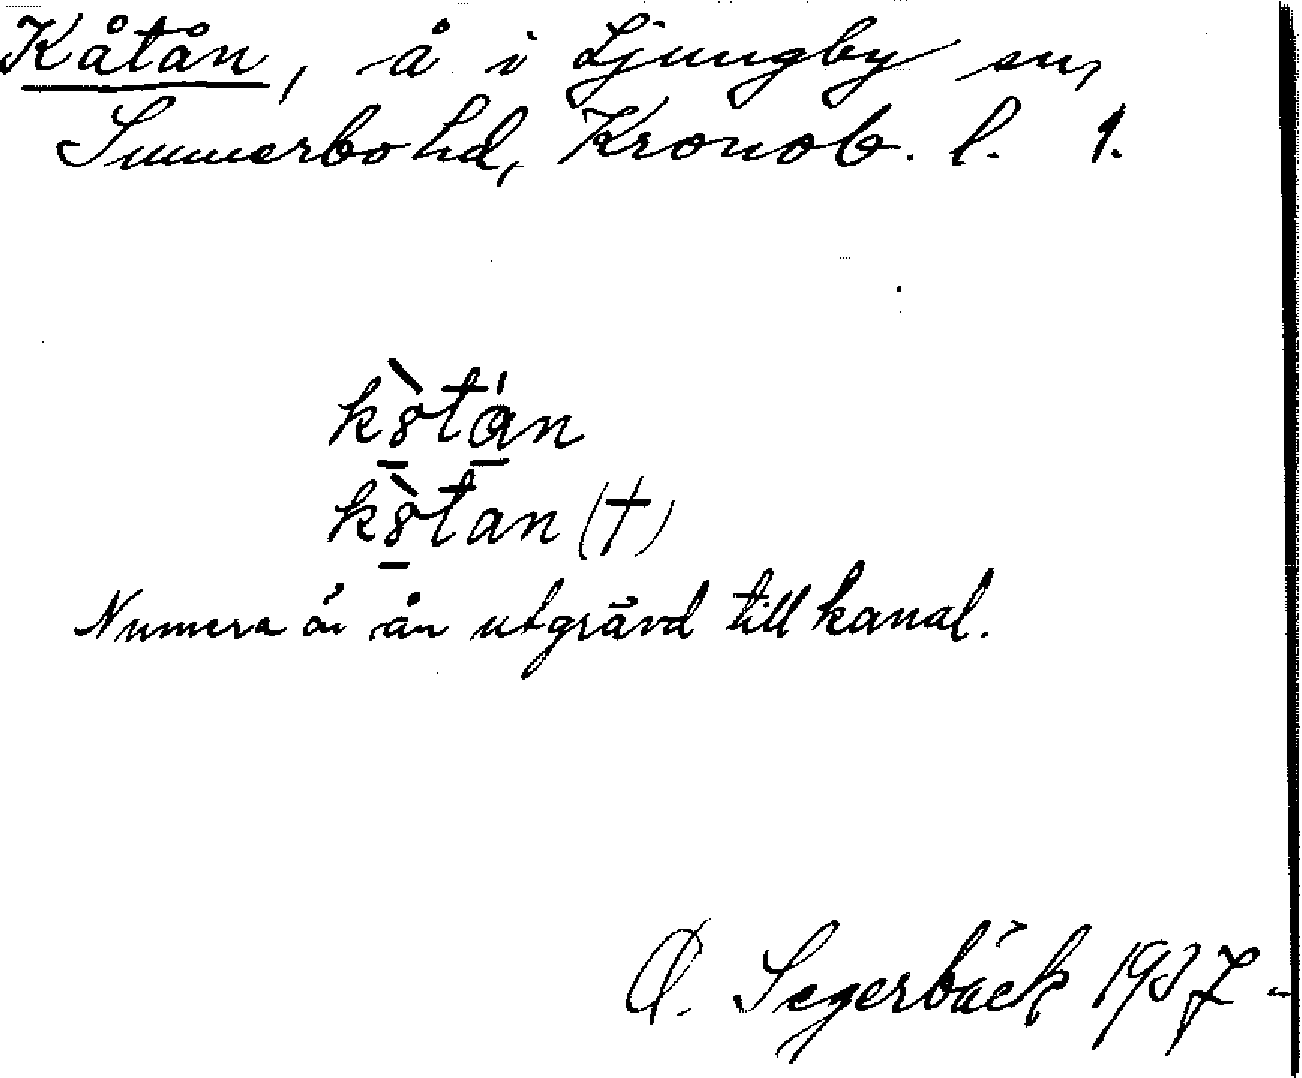 Kåtån, å i Ljungby sn,
Sunnerbo hd, Kronob. l. 1.
kȣ̀tån
kȣ̀tan (†)
Numera är ån utgrävd till kanal.
O. Segerbäck 1937-